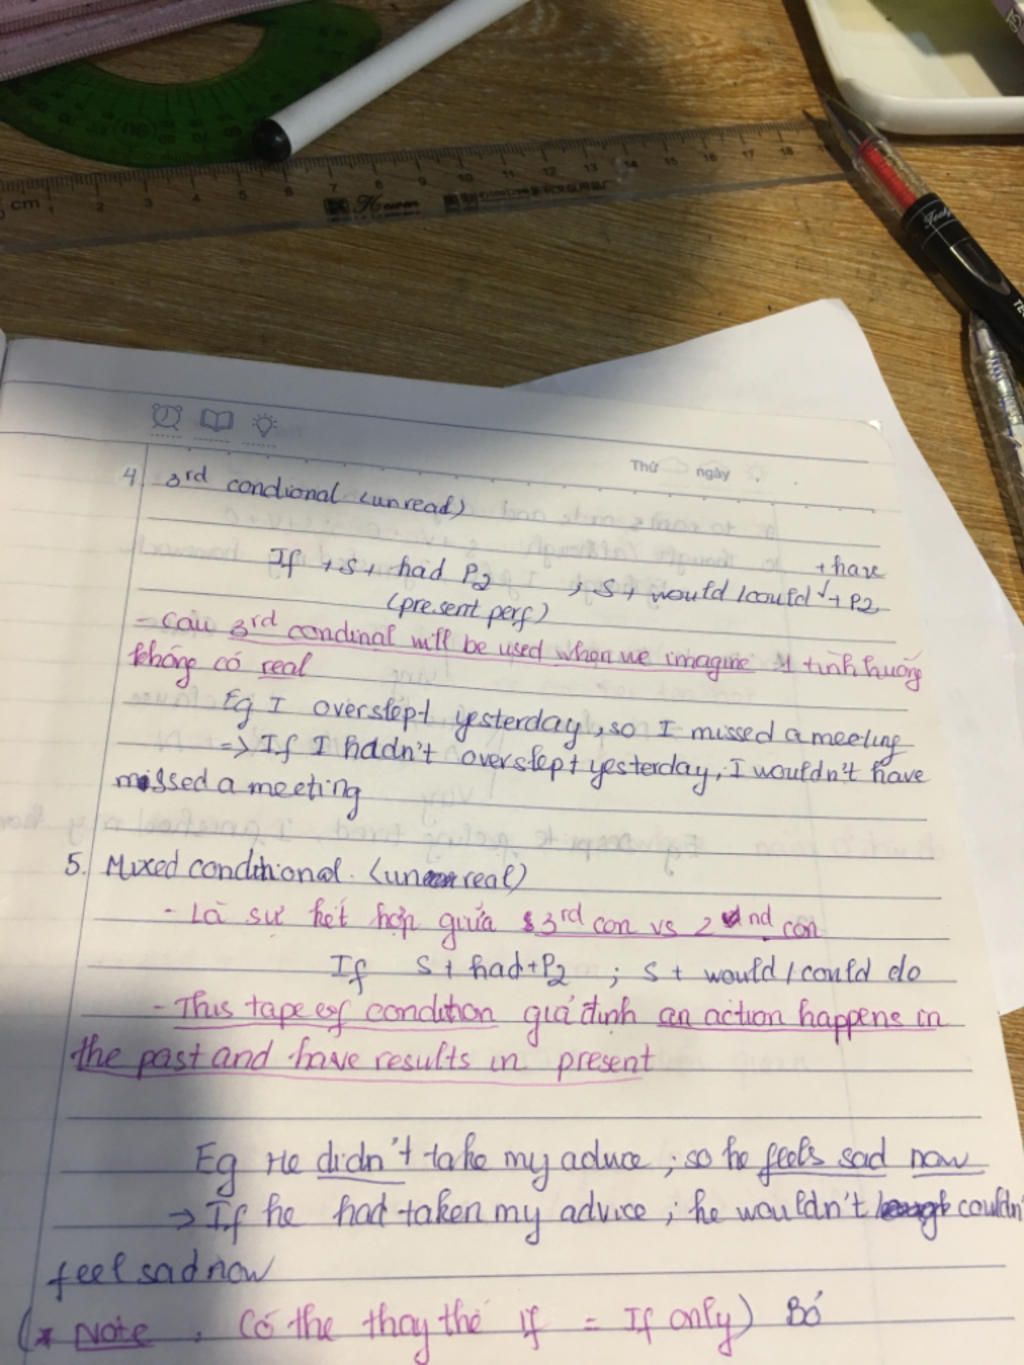 cm 1 2 3 4 5 6 7 8 9 10 11 12 13 14 15 16 17 18
Thứ ngày
4. 3rd condional (unread)
+ have
If + S + had P2 ; S + would / could + P2
(present perf)
- Câu 3rd condinal will be used when we imagine 1 tình huống
không có real
Eg I overslept yesterday, so I missed a meeting
=> If I hadn't overslept yesterday, I wouldn't have
missed a meeting
5. Mixed conditional. (unreal)
- Là sự kết hợp giữa 3rd con vs 2nd con
If S + had + P2 ; S + would / could do
- This tape of condition giả định an action happens in
the past and have results in present
Eg He didn't take my advice ; so he feels sad now
→ If he had taken my advice ; he wouldn't couldn'
feel sad now
(* Note : Có the thay thế If = If only) Bỏ